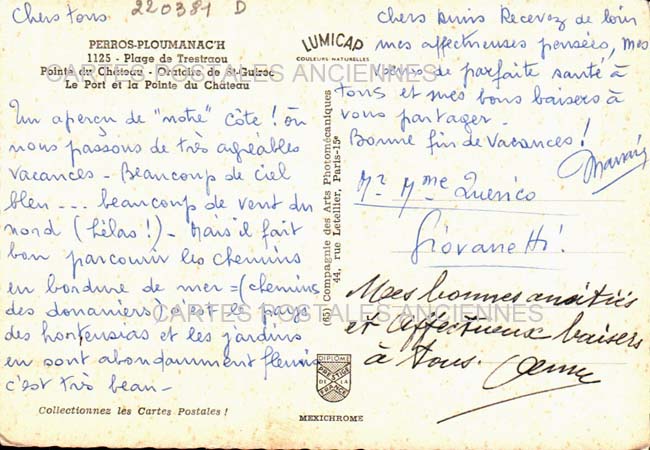 Chers tous
220381 D
PERROS-PLOUMANAC'H
1125 - Plage de Trestraou
Pointe du Château - Oratoire de St-Guirec
Le Port et la Pointe du Château
CARTES POSTALES ANCIENNES
Un aperçu de "notre" côte ! où
nous passons de très agréables
vacances - Beaucoup de ciel
bleu --- beaucoup de vent du
nord (hélas !) - Mais il fait
bon parcourir les chemins
en bordure de mer = (chemins
des douaniers) c'est le pays
des hortensias et les jardins
en sont abondamment fleuris
c'est très beau -
Collectionnez les Cartes Postales !
LUMICAP
COULEURS NATURELLES
(65) Compagnie des Arts Photomécaniques
44, rue Letellier, Paris-15e
DIPLÔME
PRESTIGE
DE LA
FRANCE
MEXICHROME
Chers amis Recevez de loin
mes affectueuses pensées, mes
voeux de parfaite santé à
tous et mes bons baisers à
vous partager.
Bonne fin de vacances !
Mr Mme Querico
Giovanetti
Mes bonnes amitiés
et affectueux baisers
à tous.
CARTES POSTALES ANCIENNES